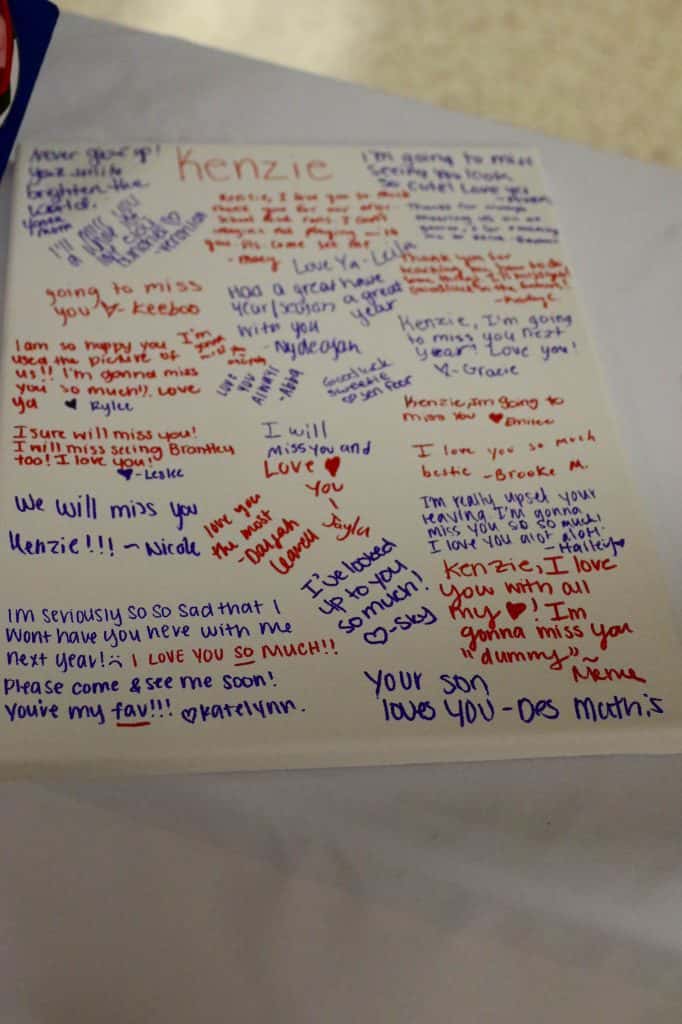 Kenzie
Never grow up!
your smile
brighten the
world.
I'll miss you
I'm going to miss
seeing you look
so cute! Love ya
Thanks for always
Kenzie, I love you so much
thank you for our after
school
playing with
you. Pls come see me
Love Ya - Leila
Thank you for
going to miss
you - Keeboo
Had a great have
year/season a great
year
with you
- Nydeajah
Kenzie, I'm going
to miss you next
year! Love you!
- Gracie
I am so happy you
used the picture of
us!! I'm gonna miss
you so much!! Love
ya Rylee
I'm
LOVE
YOU
ALWAYS
- Abba
Good luck
sweetie
Kenzie, im going to
miss you Emilee
I sure will miss you!
I will miss seeing Brantley
too! I love you!
- Leslee
I will
miss you and
Love
you
-
Jayla
I love you so much
bestie - Brooke M.
We will miss you
Kenzie!!! ~ Nicole
love you
the most
- Daijah
I'm really upset your
leaving I'm gonna
miss you so so much!
I love you alot alot!
- Hailey
I've looked
up to you
so much!
- Sky
Kenzie, I love
you with all
my ! Im
gonna miss you
"dummy"
Im seriously so so sad that I
wont have you here with me
next year! :( I LOVE YOU SO MUCH!!
Please come & see me soon!
You're my fav!!! Katelynn.
Your son
loves you - Des Mathis